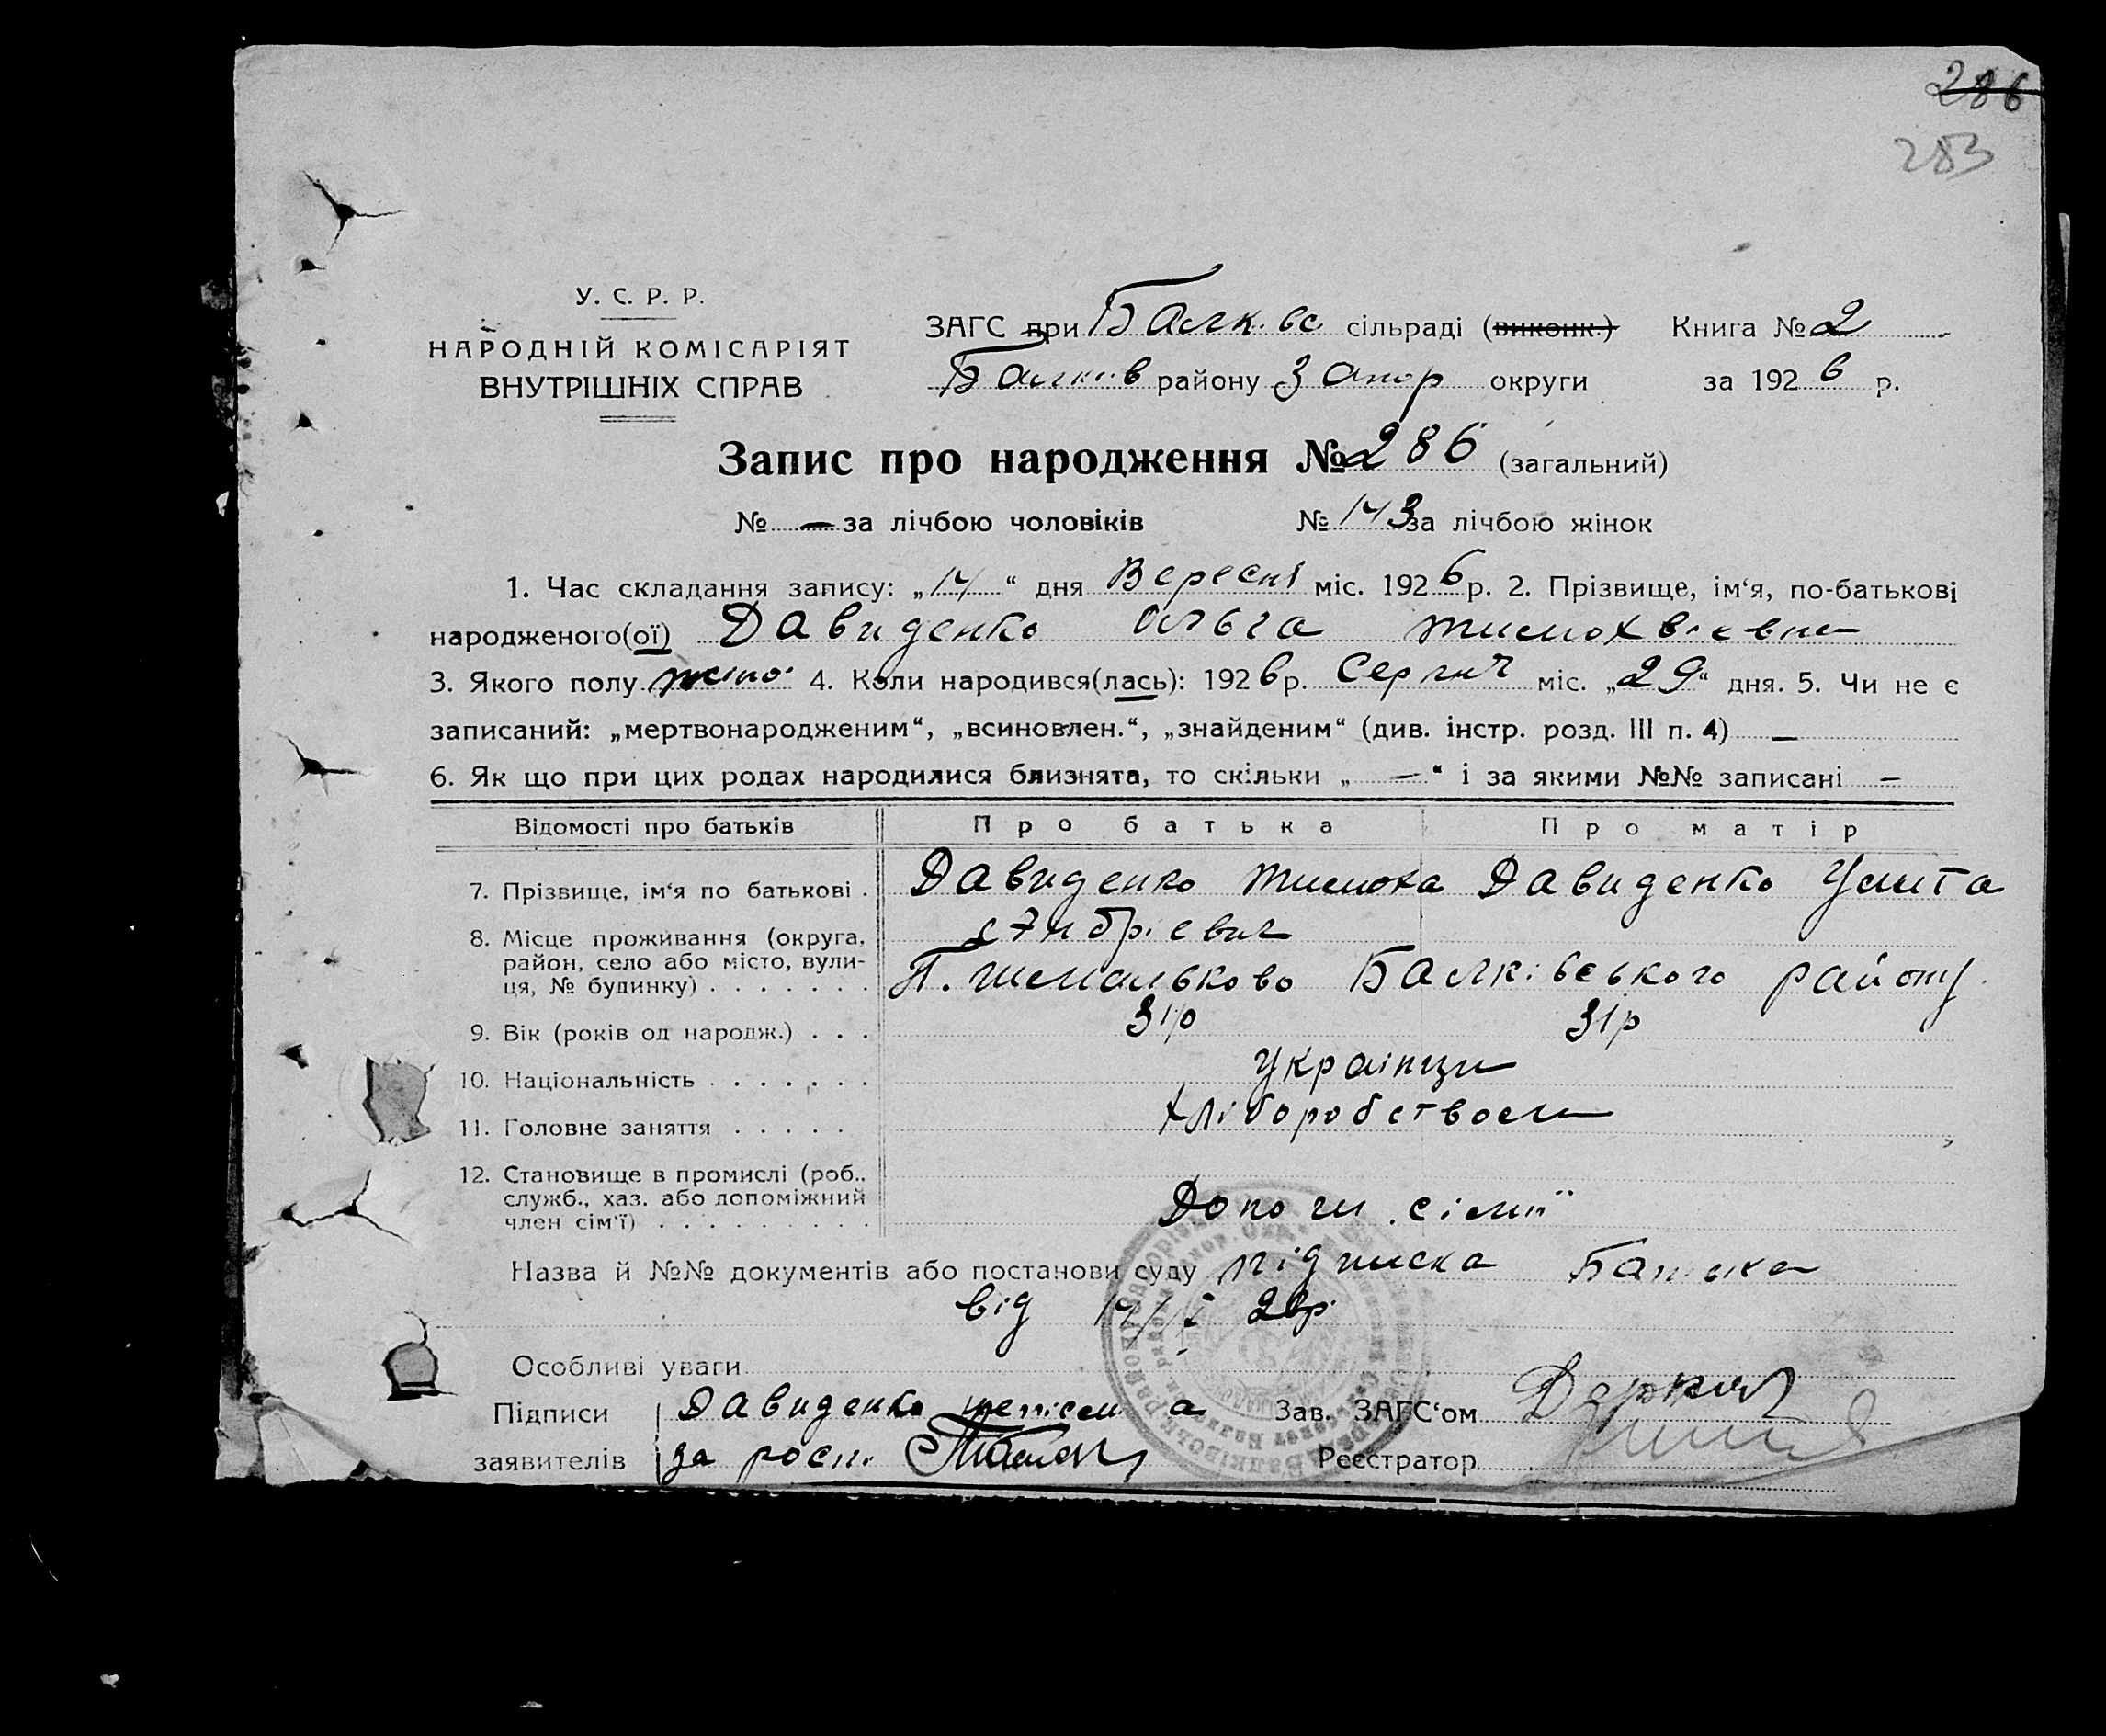 286
283
У. С. Р. Р.
НАРОДНІЙ КОМІСАРІЯТ
ВНУТРІШНІХ СПРАВ
ЗАГС при Балк. вс. сільраді (виконк.) Книга № 2
Балків району Запор округи за 1926 р.
Запис про народження № 286 (загальний)
№ — за лічбою чоловіків № 143 за лічбою жінок
1. Час складання запису: „14“ дня Вересні міс. 1926 р. 2. Прізвище, ім‘я, по-батькові
народженого(ої) Давиденко Ольга
3. Якого полу жіно 4. Коли народився(лась): 1926 р. Серпня міс. „29“ дня. 5. Чи не є
записаний: „мертвонародженим“, „всиновлен.“, „знайденим“ (див. інстр. розд. III п. 4) —
6. Як що при цих родах народилися близнята, то скільки „ — “ і за якими №№ записані —
Відомості про батьків Про батька Про матір
7. Прізвище, ім‘я по батькові . Давиденко Тимоха Давиденко
8. Місце проживання (округа,
район, село або місто, вули-
ця, № будинку) . . . . . . . Балківського району
9. Вік (років од народж.) . . . 31р 31р
10. Національність . . . . . . . Українци
11. Головне заняття . . . . . Хліборобством
12. Становище в промислі (роб.,
служб., хаз. або допоміжний
член сім‘ї) . . . . . . . . . . Допо чл. сімії
Назва й №№ документів або постанови суду підписка Батька
від 26р.
Особливі уваги
Підписи Давиденко а Зав. ЗАГС‘ом
заявителів за росп. Реєстратор